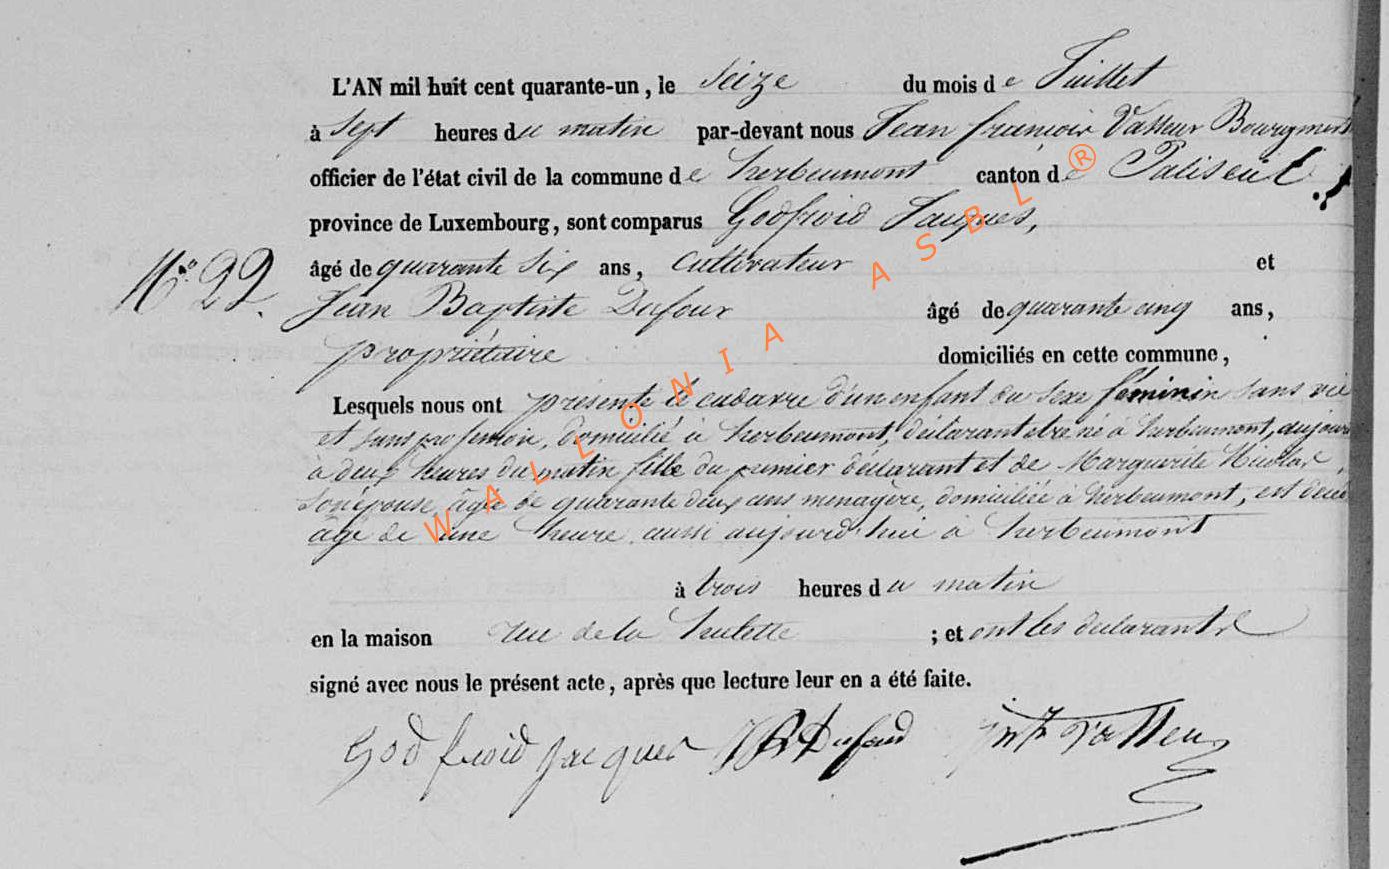 L'AN mil huit cent quarante-un, le Seize du mois de Juillet
à Sept heures du matin par-devant nous Jean françois Vasseur Bourgmest
officier de l'état civil de la commune de herbeumont canton de Paliseul
province de Luxembourg, sont comparus Godfroid Jacques,
N° 22.
âgé de quarante Six ans, Cultivateur et
Jean Baptiste Dufour âgé de quarante cinq ans,
propriétaire domiciliés en cette commune,
Lesquels nous ont présenté le cadavre d'un enfant du sexe féminin sans vie
et sans profession, domicilié à herbeumont, déclarant être né à herbeumont, aujour
à deux heures du matin fille du premier déclarant et de Marguerite
son épouse, âgée de quarante deux ans menagère, domiciliée à herbeumont, est décé
âgé de une heure aussi aujourd'hui à herbeumont
à trois heures du matin
en la maison rue de la hulette ; et ont les déclarants
signé avec nous le présent acte, après que lecture leur en a été faite.
Godfroid jacques JB Dufour Vasseur
WALLONIA ASBL ®